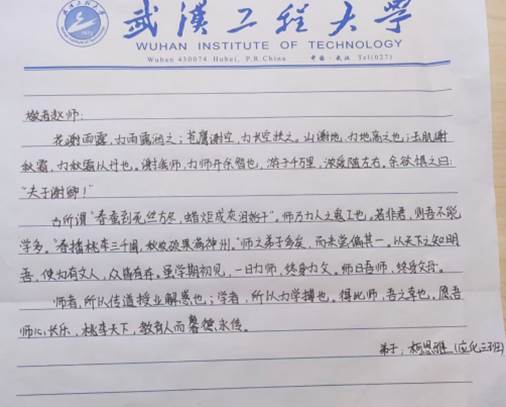 武漢工程大学
WUHAN INSTITUTE OF TECHNOLOGY
Wuhan 430074 Hubei, P.R.China 中国·武汉 Tel(027)
敬者赵师:
花谢雨露,力雨露润之;苍鹰谢空,力长空扶之。山谢地,力地高之也;去肌谢
秋霜,力秋霜从丹也。谢恩师,力师开余智也,游子千万里,浓爱随左右。余欲恨之曰:
“夫子谢卿!”
古所谓“春蚕到死丝方尽,蜡炬成灰泪始干”。师乃力人之魂工也。若非君,则吾不能
学多。“春播桃李三千圃,秋收硕果满神州。”师之弟子多矣,而未尝偏其一。从天下之知明
善,使为有文人,众皆有存。虽学期初见,一日力师,终身力父。师曰吾师,终身父母。
师者,所以传道授业解惑也;学者,所以力学撑也。得此师,吾之幸也,愿吾
师心长乐,桃李天下,教育人而馨德永传。
弟子: